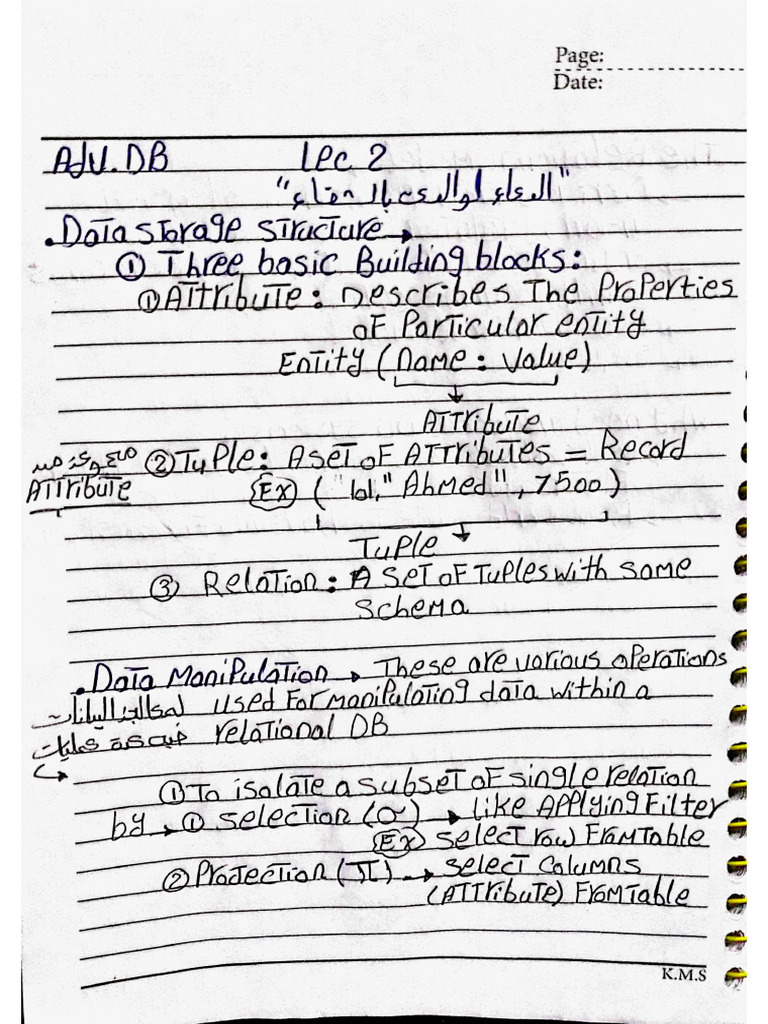 Page:
Date:
Adv.DB Lec 2
"الدعاء لوالدى بالشفاء"
. Data storage structure →
① Three basic Building blocks:
① Attribute: Describes The Properties
of Particular entity
Entity (name: value)
Attribute
مجموعة من ② Tuple: A set of Attributes = Record
Attribute Ex ("lol," Ahmed", 7500)
Tuple
③ Relation: A set of Tuples with same
schema
. Data Manipulation → These are various operations
لمعالجة البيانات used for manipulating data within a
عمليات relational DB
① To isolate a subset of single relation
by → ① selection (σ) → like Applying Filter
Ex select row From table
② Projection (π) → select columns
(Attribute) From table
K.M.S